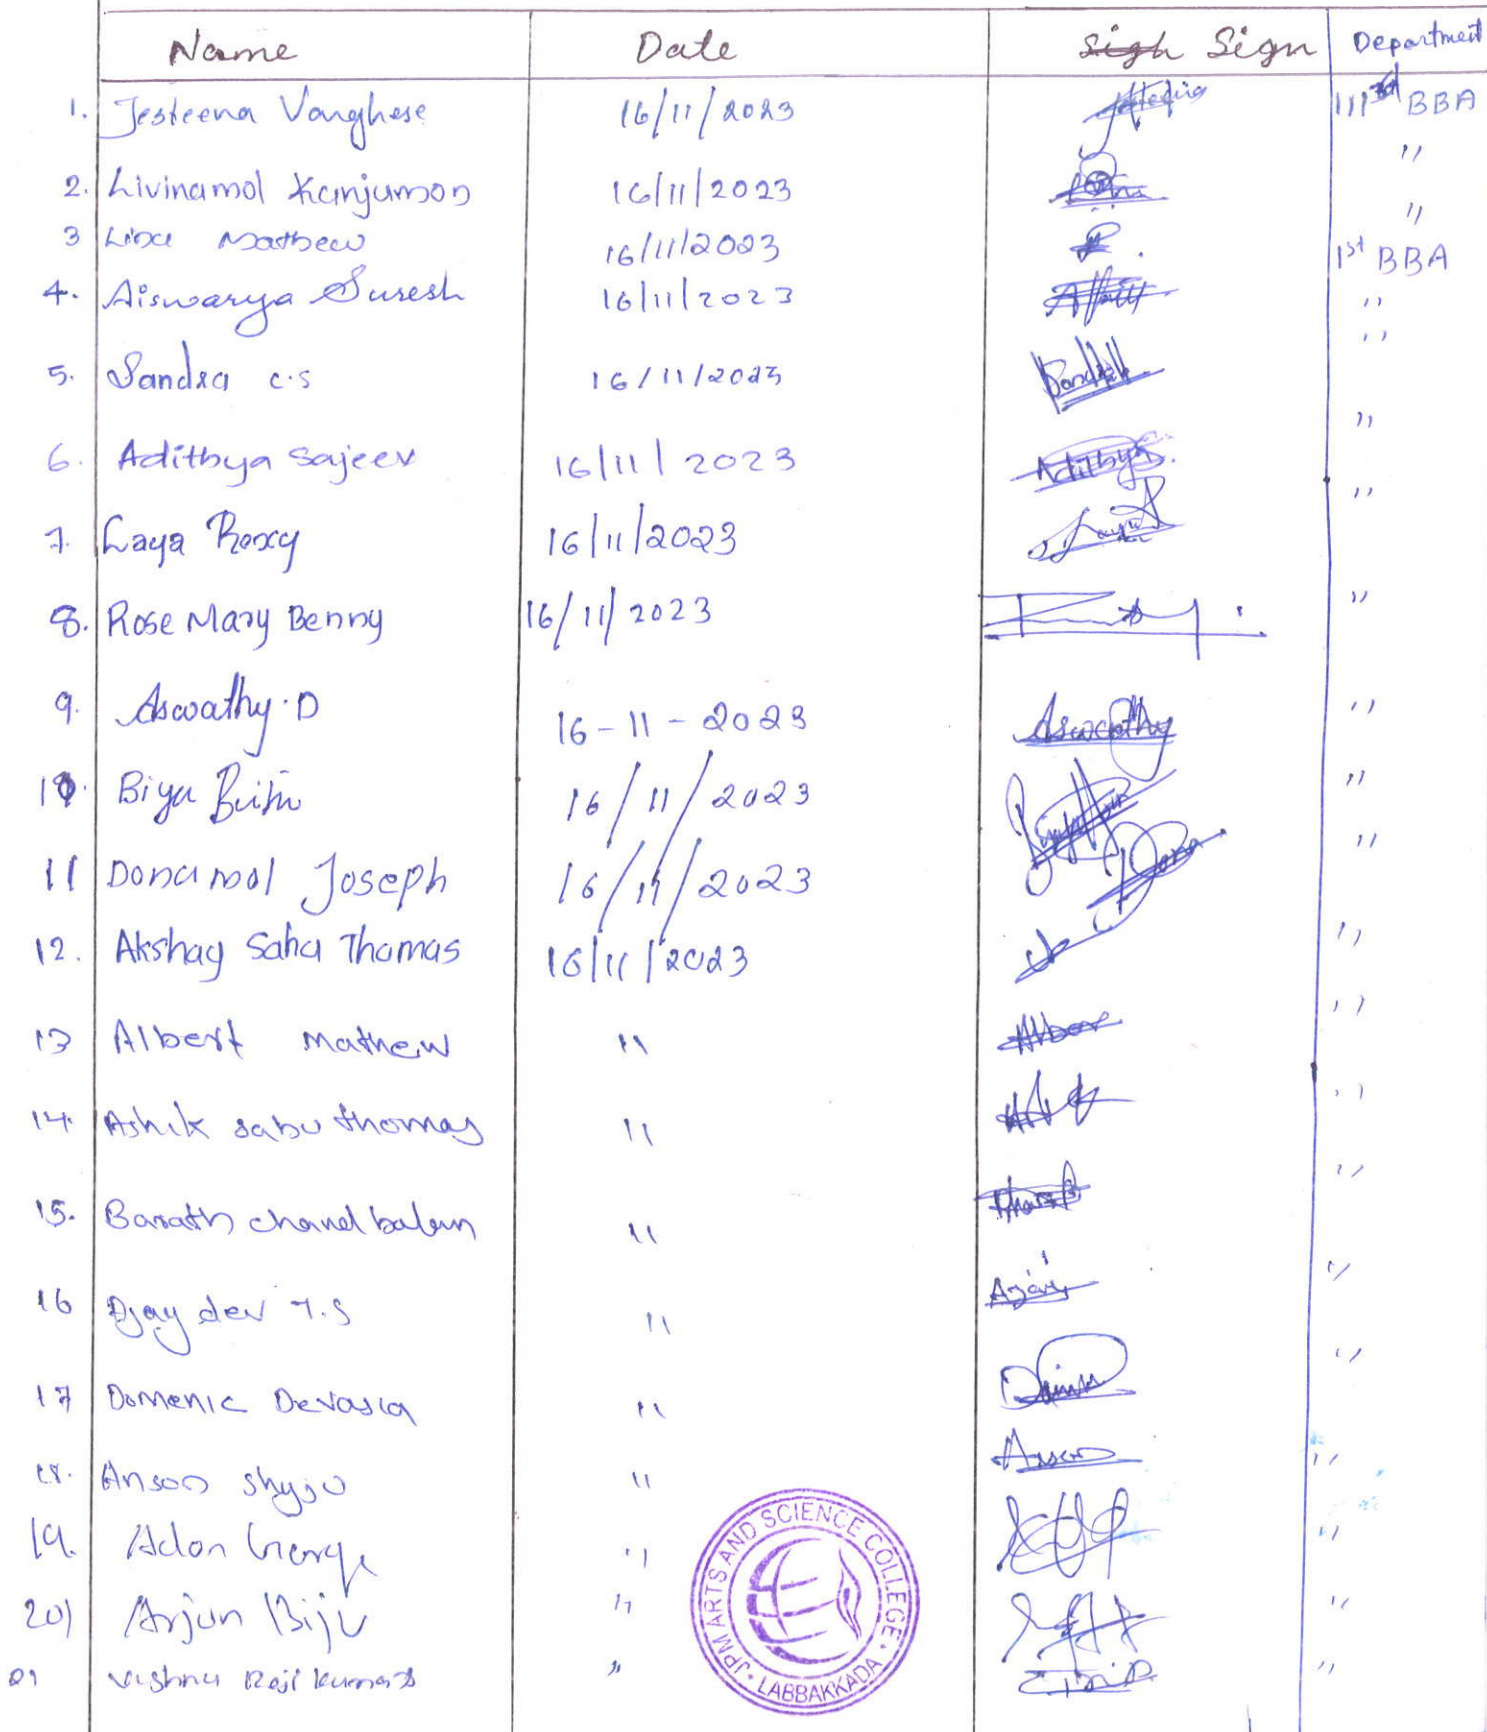 Name Date Sign Department
1. Jesteena Varghese 16/11/2023 III rd BBA
2. Livinamol Kunjumon 16/11/2023 "
3 Lina Mathew 16/11/2023 "
1st BBA
4. Aiswarya Suresh 16/11/2023 "
5. Sandra c.s 16/11/2023 "
6. Adithya Sajeev 16/11/2023 Adithya "
7. Laya Roxy 16/11/2023 "
8. Rose Mary Benny 16/11/2023 "
9. Aswathy.D 16-11-2023 Aswathy "
10. Biya 16/11/2023 "
11 Donamol Joseph 16/11/2023 "
12. Akshay Saha Thomas 16/11/2023 "
13 Albert Mathew " "
14. Ashik sabu thomas " "
15. Barath chand balan " "
16 Ajay dev T.S " Ajay "
17 Domenic Devasia " "
18. Anson shyju " Anson "
19. Adon George " "
20) Arjun Biju " "
21 Vishnu Reji kumar " "
JPM ARTS AND SCIENCE COLLEGE
LABBAKKADA